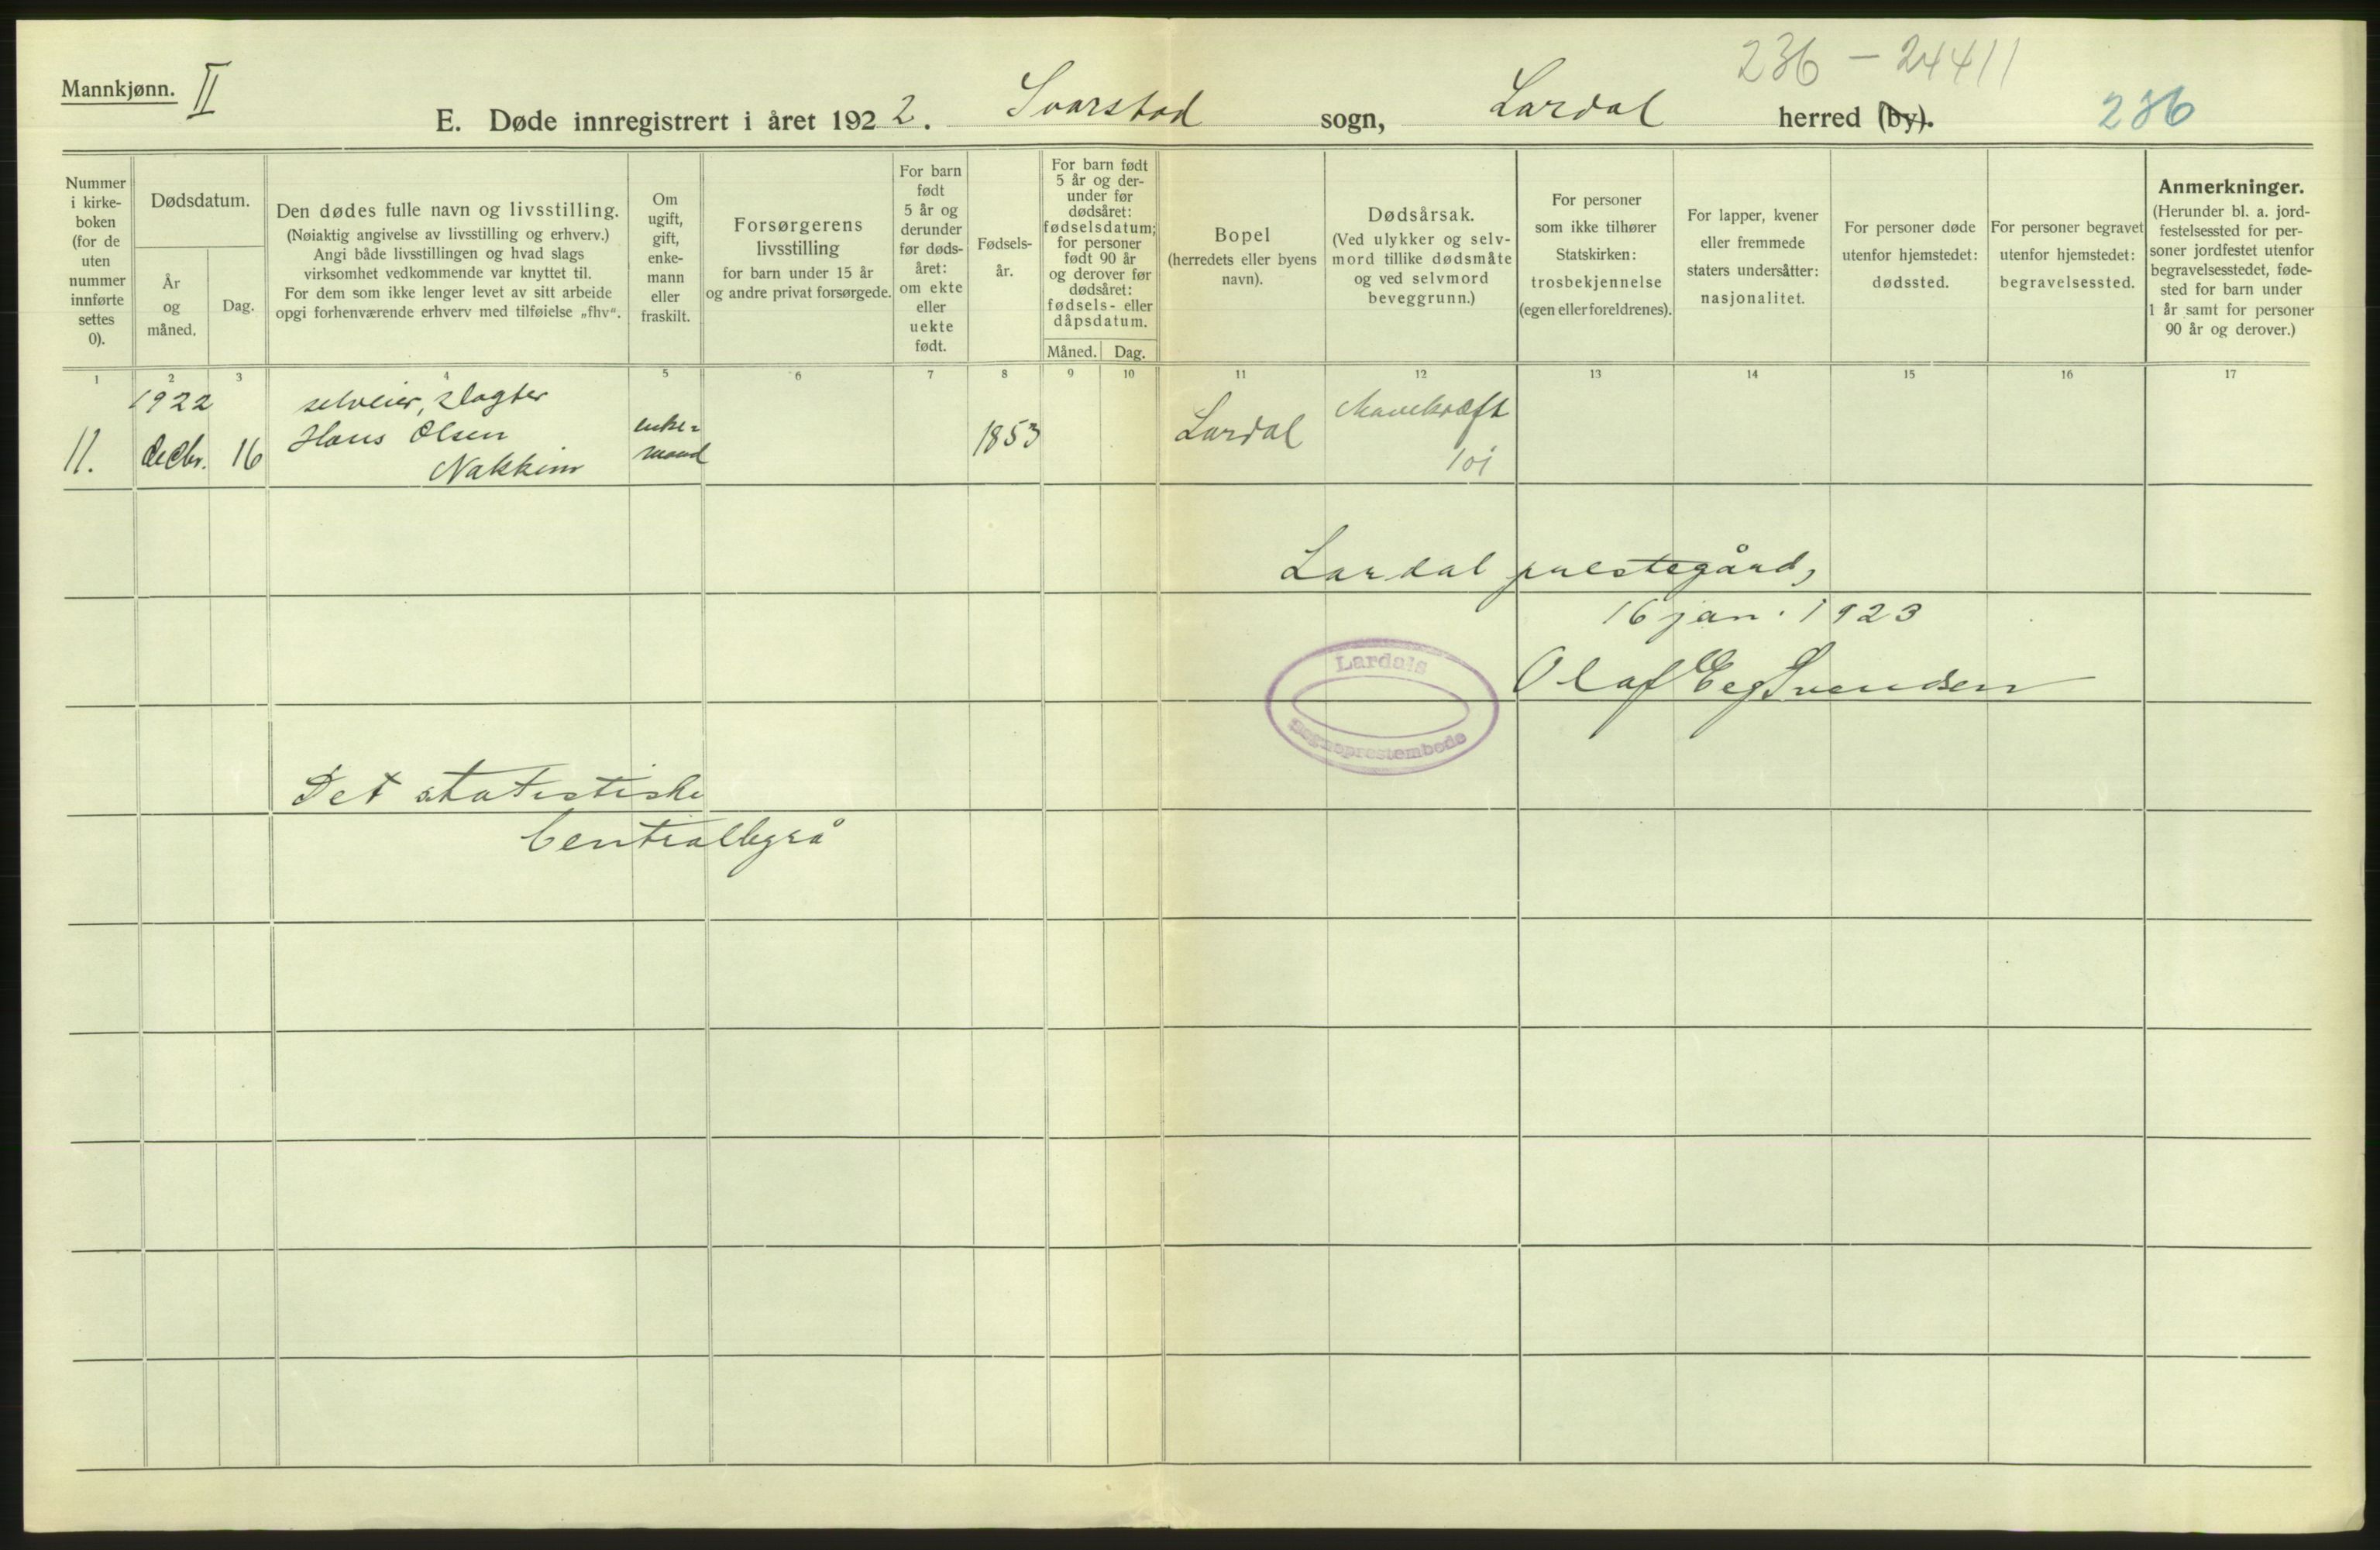 236 – 244 11
Mannkjønn. II
E. Døde innregistrert i året 1922. Svarstad sogn, Lardal herred (by). 236
Nummer
i kirke-
boken
(for de
uten
nummer
innførte
settes
0).
Dødsdatum.
År
og
måned.
Dag.
Den dødes fulle navn og livsstilling.
(Nøiaktig angivelse av livsstilling og erhverv.)
Angi både livsstillingen og hvad slags
virksomhet vedkommende var knyttet til.
For dem som ikke lenger levet av sitt arbeide
opgi forhenværende erhverv med tilføielse „fhv“.
Om
ugift,
gift,
enke-
mann
eller
fraskilt.
Forsørgerens
livsstilling
for barn under 15 år
og andre privat forsørgede.
For barn
født
5 år og
derunder
før døds-
året:
om ekte
eller
uekte
født.
Fødsels-
år.
For barn født
5 år og der-
under før
dødsåret:
fødselsdatum;
for personer
født 90 år
og derover før
dødsåret:
fødsels- eller
dåpsdatum.
Måned. Dag.
Bopel
(herredets eller byens
navn).
Dødsårsak.
(Ved ulykker og selv-
mord tillike dødsmåte
og ved selvmord
beveggrunn.)
For personer
som ikke tilhører
Statskirken:
trosbekjennelse
(egen eller foreldrenes).
For lapper, kvener
eller fremmede
staters undersåtter:
nasjonalitet.
For personer døde
utenfor hjemstedet:
dødssted.
For personer begravet
utenfor hjemstedet:
begravelsessted.
Anmerkninger.
(Herunder bl. a. jord-
festelsessted for per-
soner jordfestet utenfor
begravelsesstedet, føde-
sted for barn under
1 år samt for personer
90 år og derover.)
1 2 3 4 5 6 7 8 9 10 11 12 13 14 15 16 17
1922
11. decbr. 16
selveier, slagter
Hans Olsen
Nakkim
enke-
mand
1853
Lardal
Mavekræft
101
Lardal prestegård,
16 jan. 1923
Olaf Eeg Svendsen
Lardals
sogneprestembede
Det statistiske
Centralbyrå